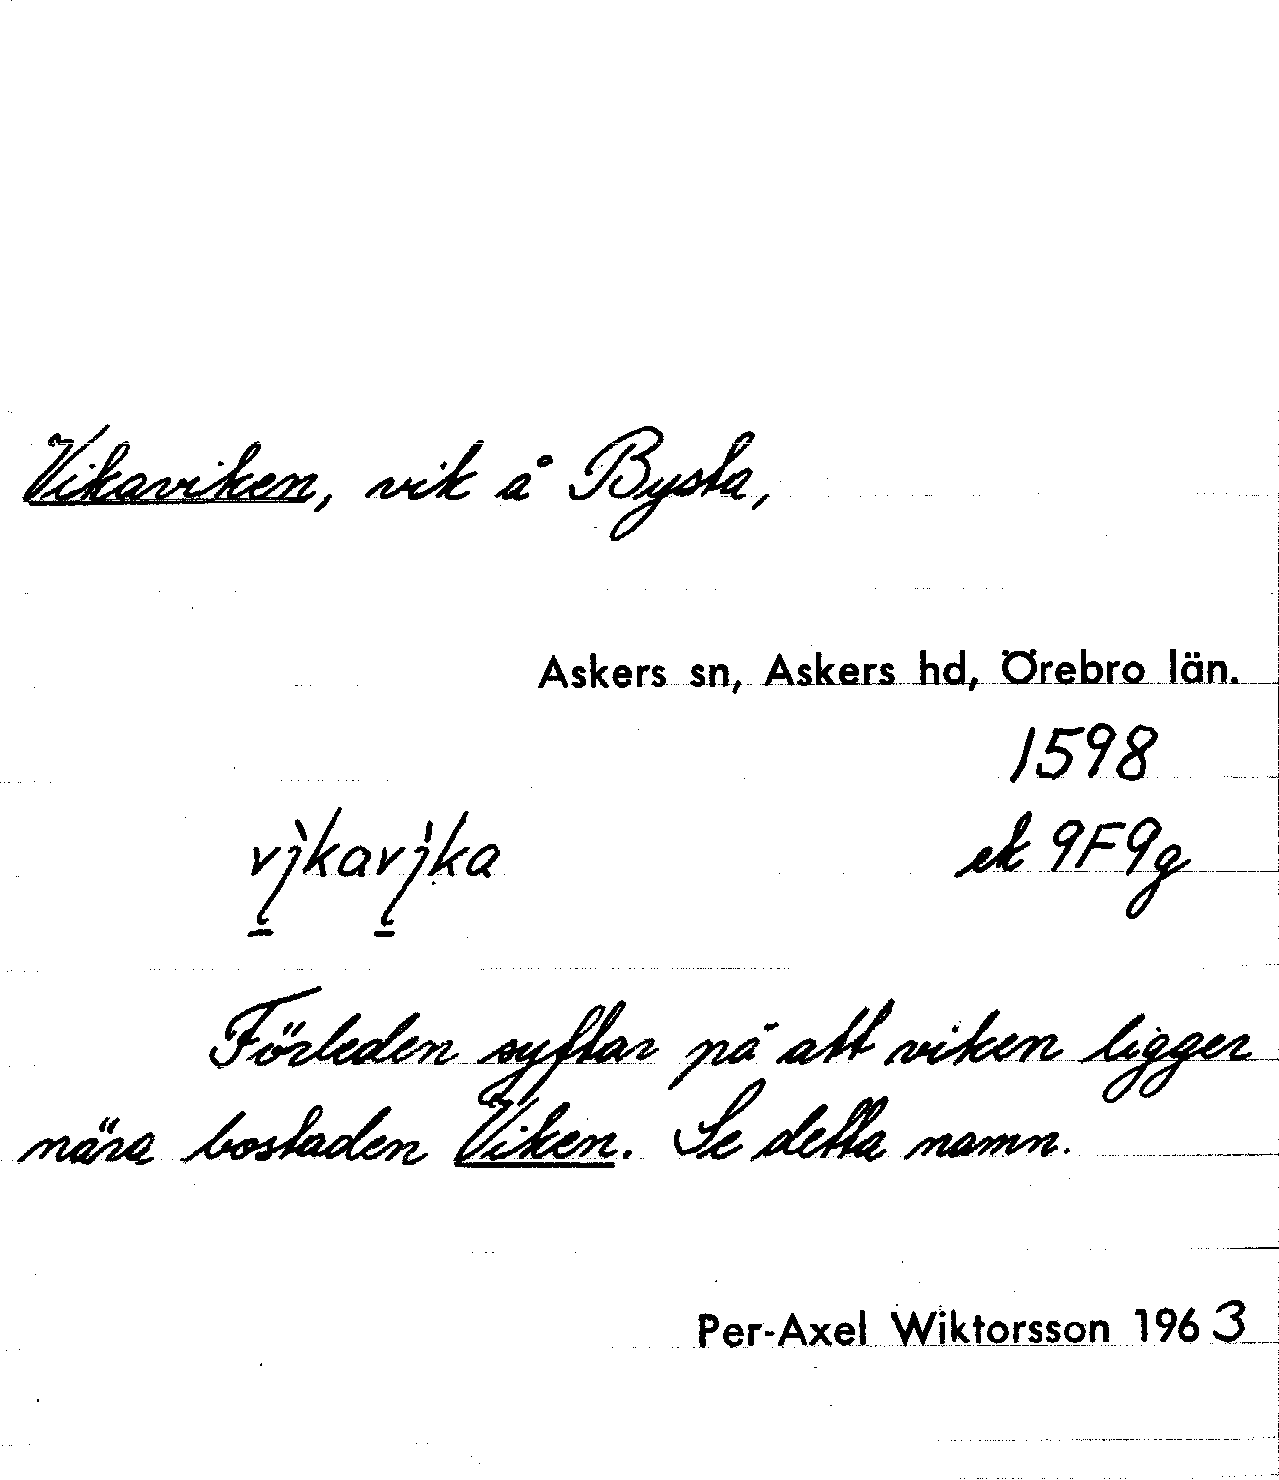 Vikaviken, vik å Bysta,
Askers sn, Askers hd, Örebro län.
1598
vìkavìka ek 9F9g
Förleden syftar på att viken ligger
nära bostaden Viken. Se detta namn.
Per-Axel Wiktorsson 1963